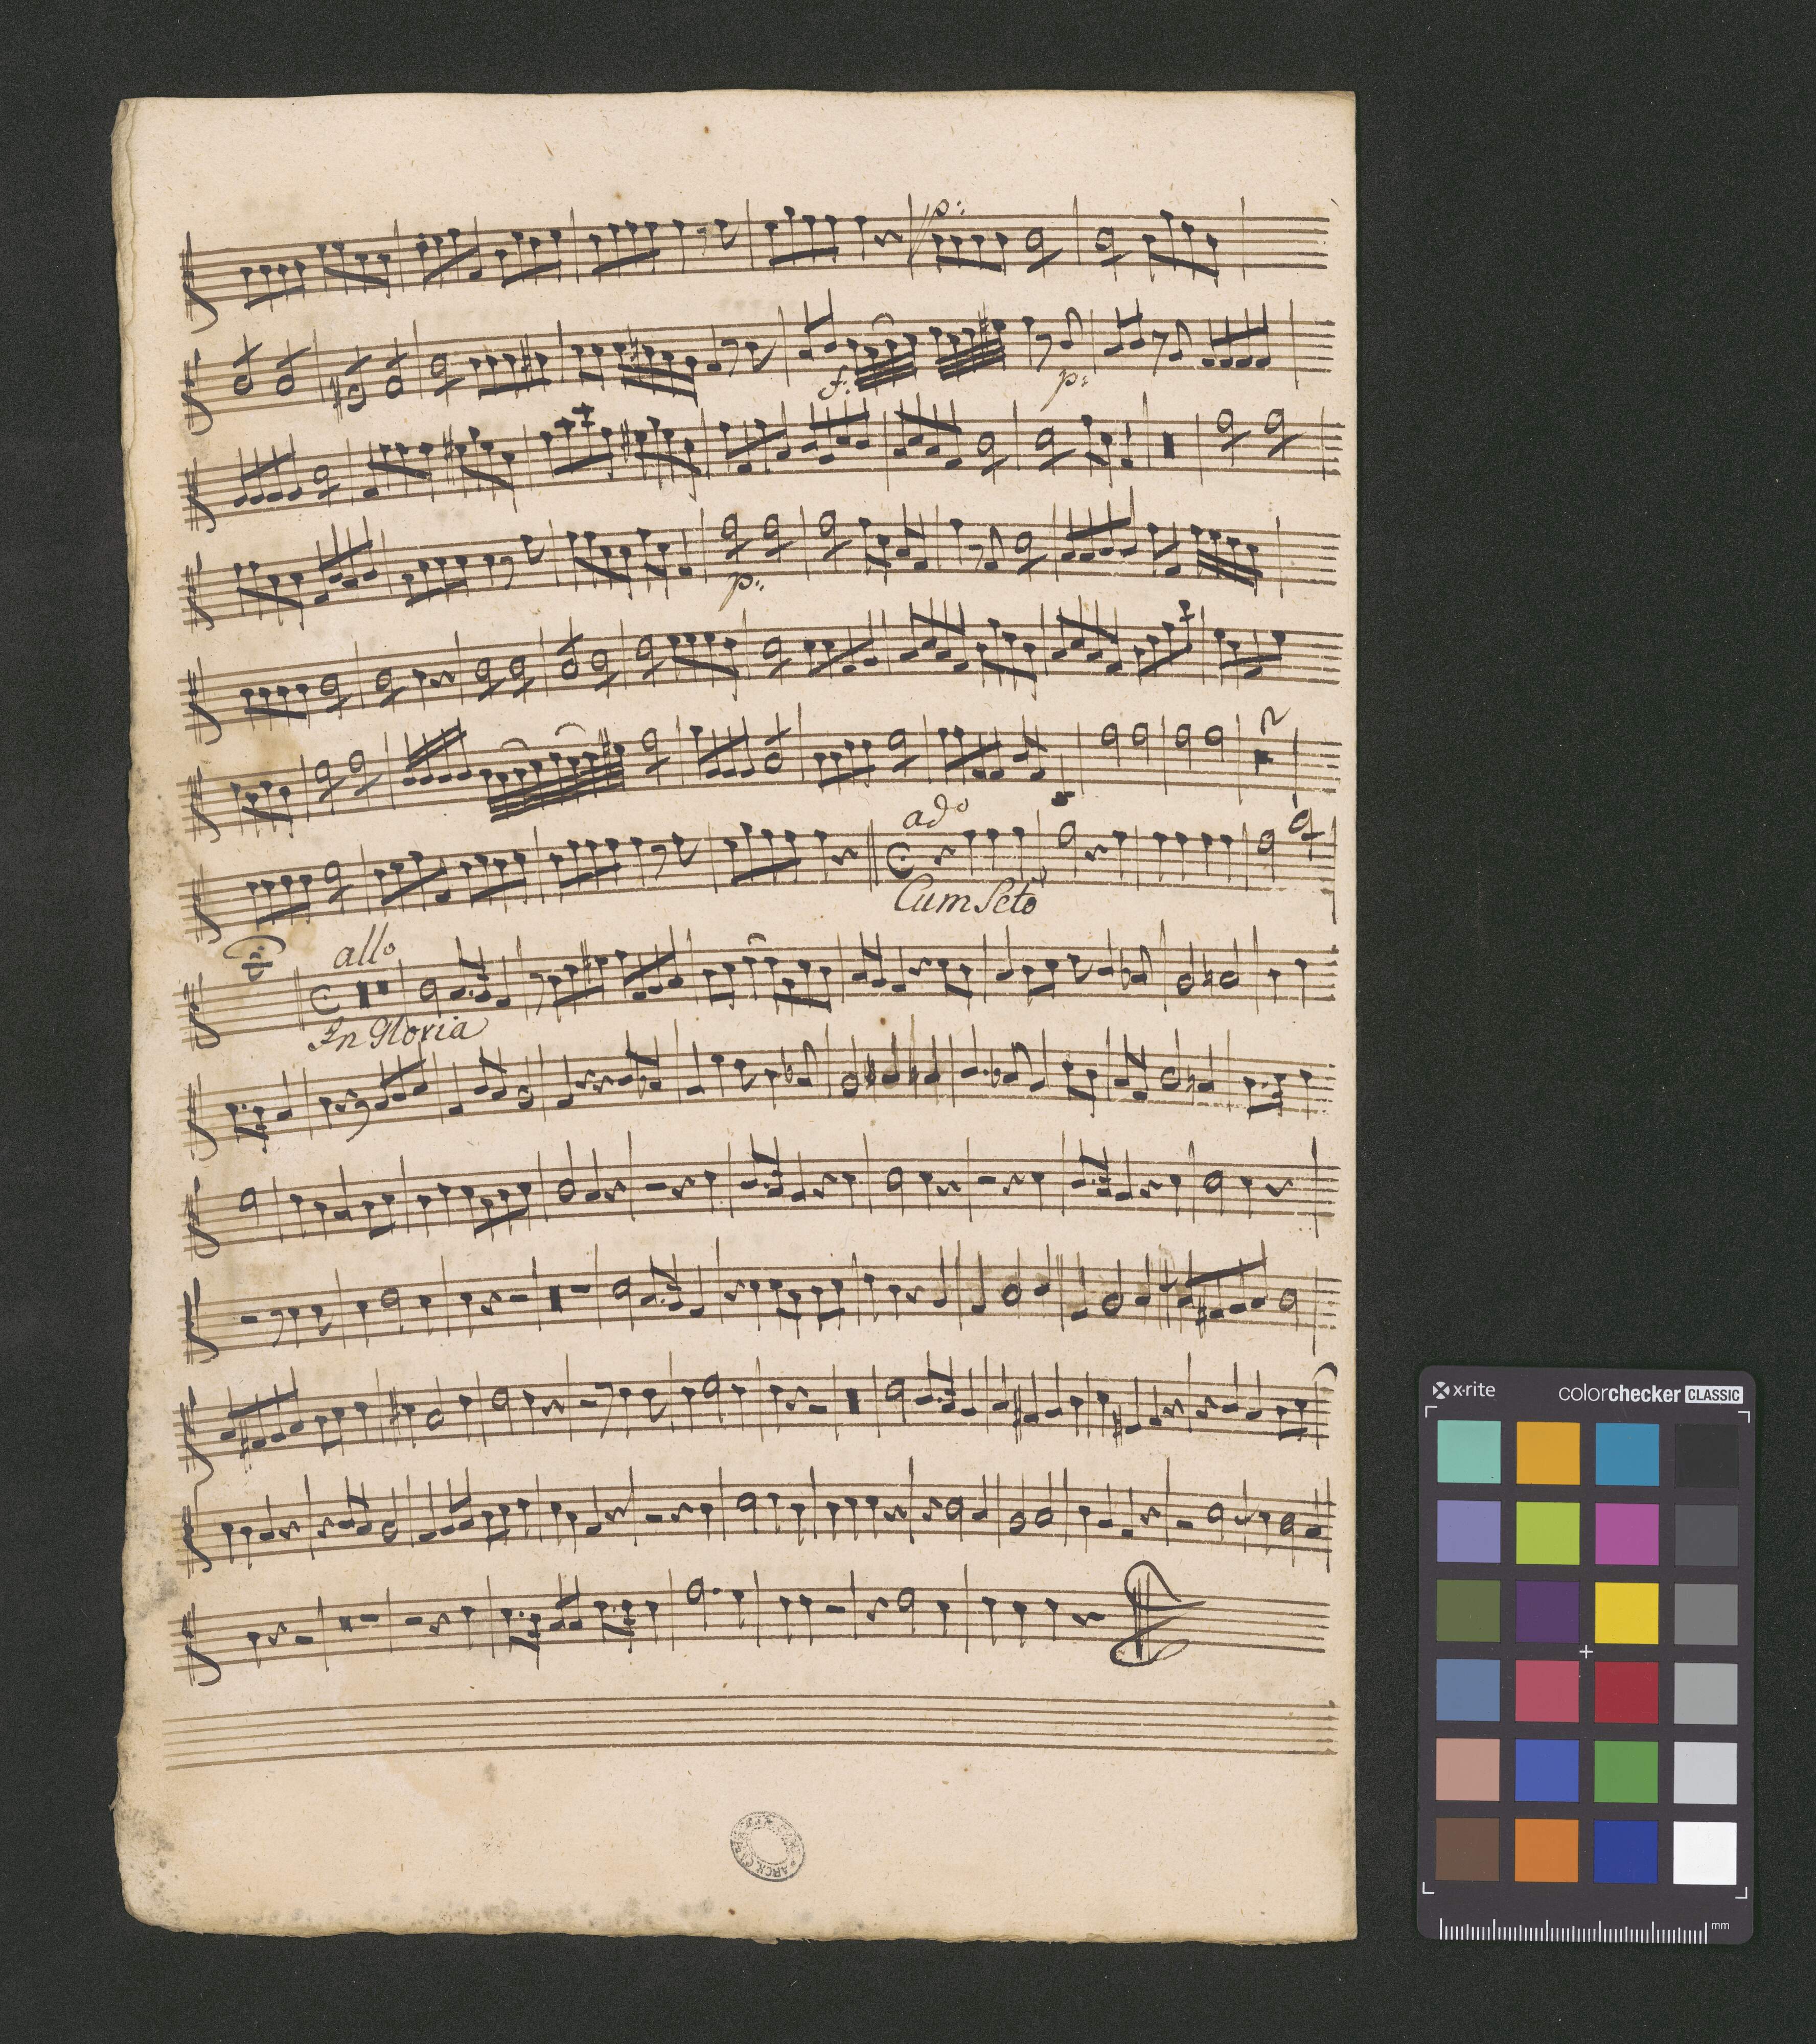 p:
f: p:
p:
ado
Cum Scto
allo
In Gloria
x-rite colorchecker CLASSIC
mm